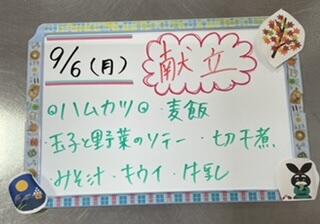 9/6(月) 献立
◎ハムカツ◎ ・麦飯
・玉子と野菜のソテー ・切干煮
・みそ汁 ・キウイ ・牛乳